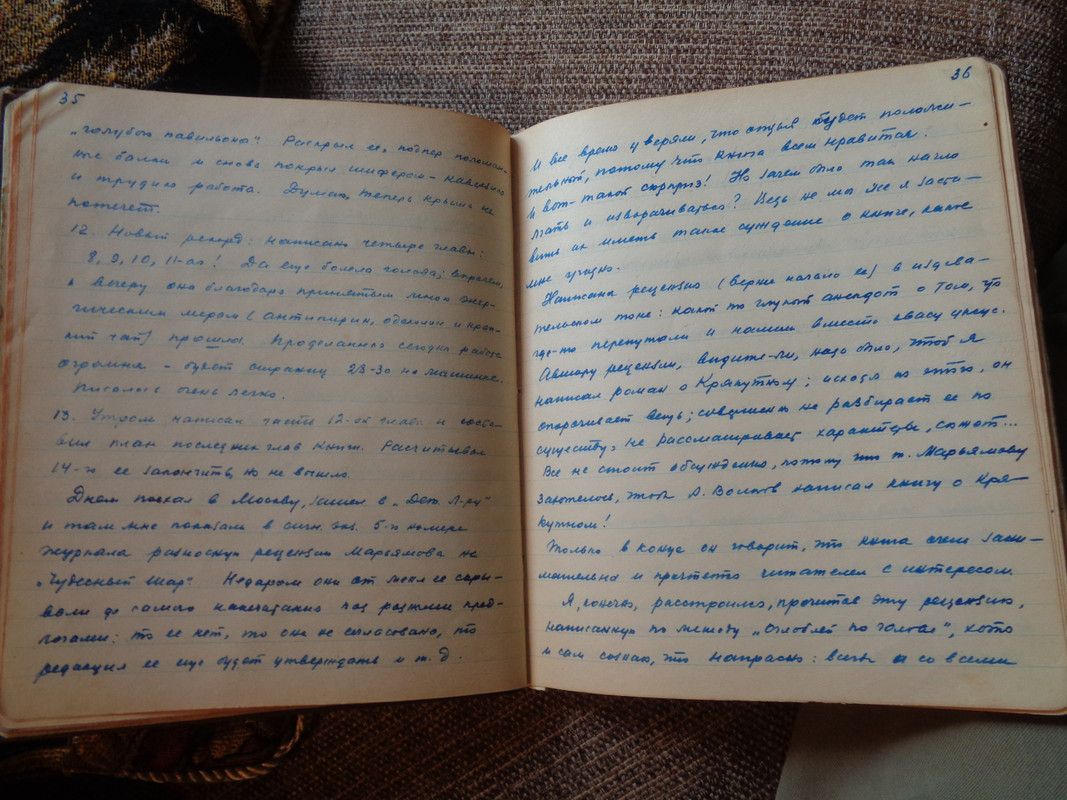 35
„голубого павильона“. Раскрыл ее, подпер поломан-
ные балки и снова покрыл шифером –
и трудная работа. Думаю, теперь крыша не
потечет.
12. Новый рекорд: написано четыре главы:
8, 9, 10, 11-ая! Да еще болела голова; впрочем,
к вечеру она благодаря принятым мною энер-
гическим мерам (антипирин, одеколон и креп-
кий чай) прошла. Проделанная сегодня работа
огромна – будет страниц 28-30 на машинке.
Писалось очень легко.
13. Утром написал часть 12-ой главы и соста-
вил план последних глав книги. Расчитывал
14-го ее закончить, но не вышло.
Днем поехал в Москву, зашел в „Дет. Л-ру“
и там мне показали в сигн. экз. 5-го номера
журнала разносную рецензию Марьямова на
„Чудесный шар“. Недаром они от меня ее скры-
вали до самого напечатания под разными пред-
логами: то ее нет, то она не согласована, то
редакция ее еще будет утверждать и т. д.
36
И все время уверяли, что отзыв будет положи-
тельный, потому что книга всем нравится.
И вот – такой сюрприз! Но зачем было так нагло
лгать и изворачиваться? Ведь не мог же я заста-
вить их иметь такое суждение о книге, какое
мне угодно.
Написана рецензия (вернее начало ее) в издева-
тельском тоне: какой-то глупый анекдот о том, что
где-то перепутали и налили вместо квасу уксус.
Автору рецензии, видите-ли, надо было, чтоб я
написал роман о Крякутном; исходя из этого, он
опорочивает вещь; совершенно не разбирает ее по
существу, не рассматривает характеры, сюжет...
Все не стоит обсуждения, потому что т. Марьямову
захотелось, чтоб А. Волков написал книгу о Кря-
кутном!
Только в конце он говорит, что книга очень зани-
мательна и прочтется читателем с интересом.
Я, конечно, расстроился, прочитав эту рецензию,
написанную по методу „оглоблей по голове“, хотя
и сам сознаю, что напрасно: со всеми